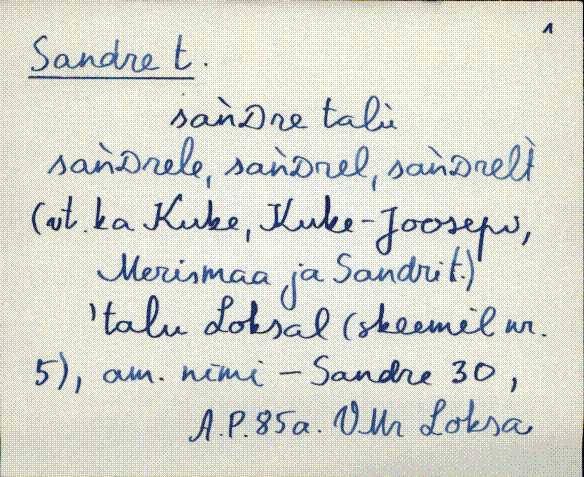 1
Sandre t.
sańDre talù
sańDrele, sańDrel, sańDrelt̀
(vt. ka Kuke, Kuke-Joosepi,
Merismaa ja Sandri t.)
'talu Loksal (skeemil nr.
5), am. nimi – Sandre 30,
A.P. 85a. VMr Loksa